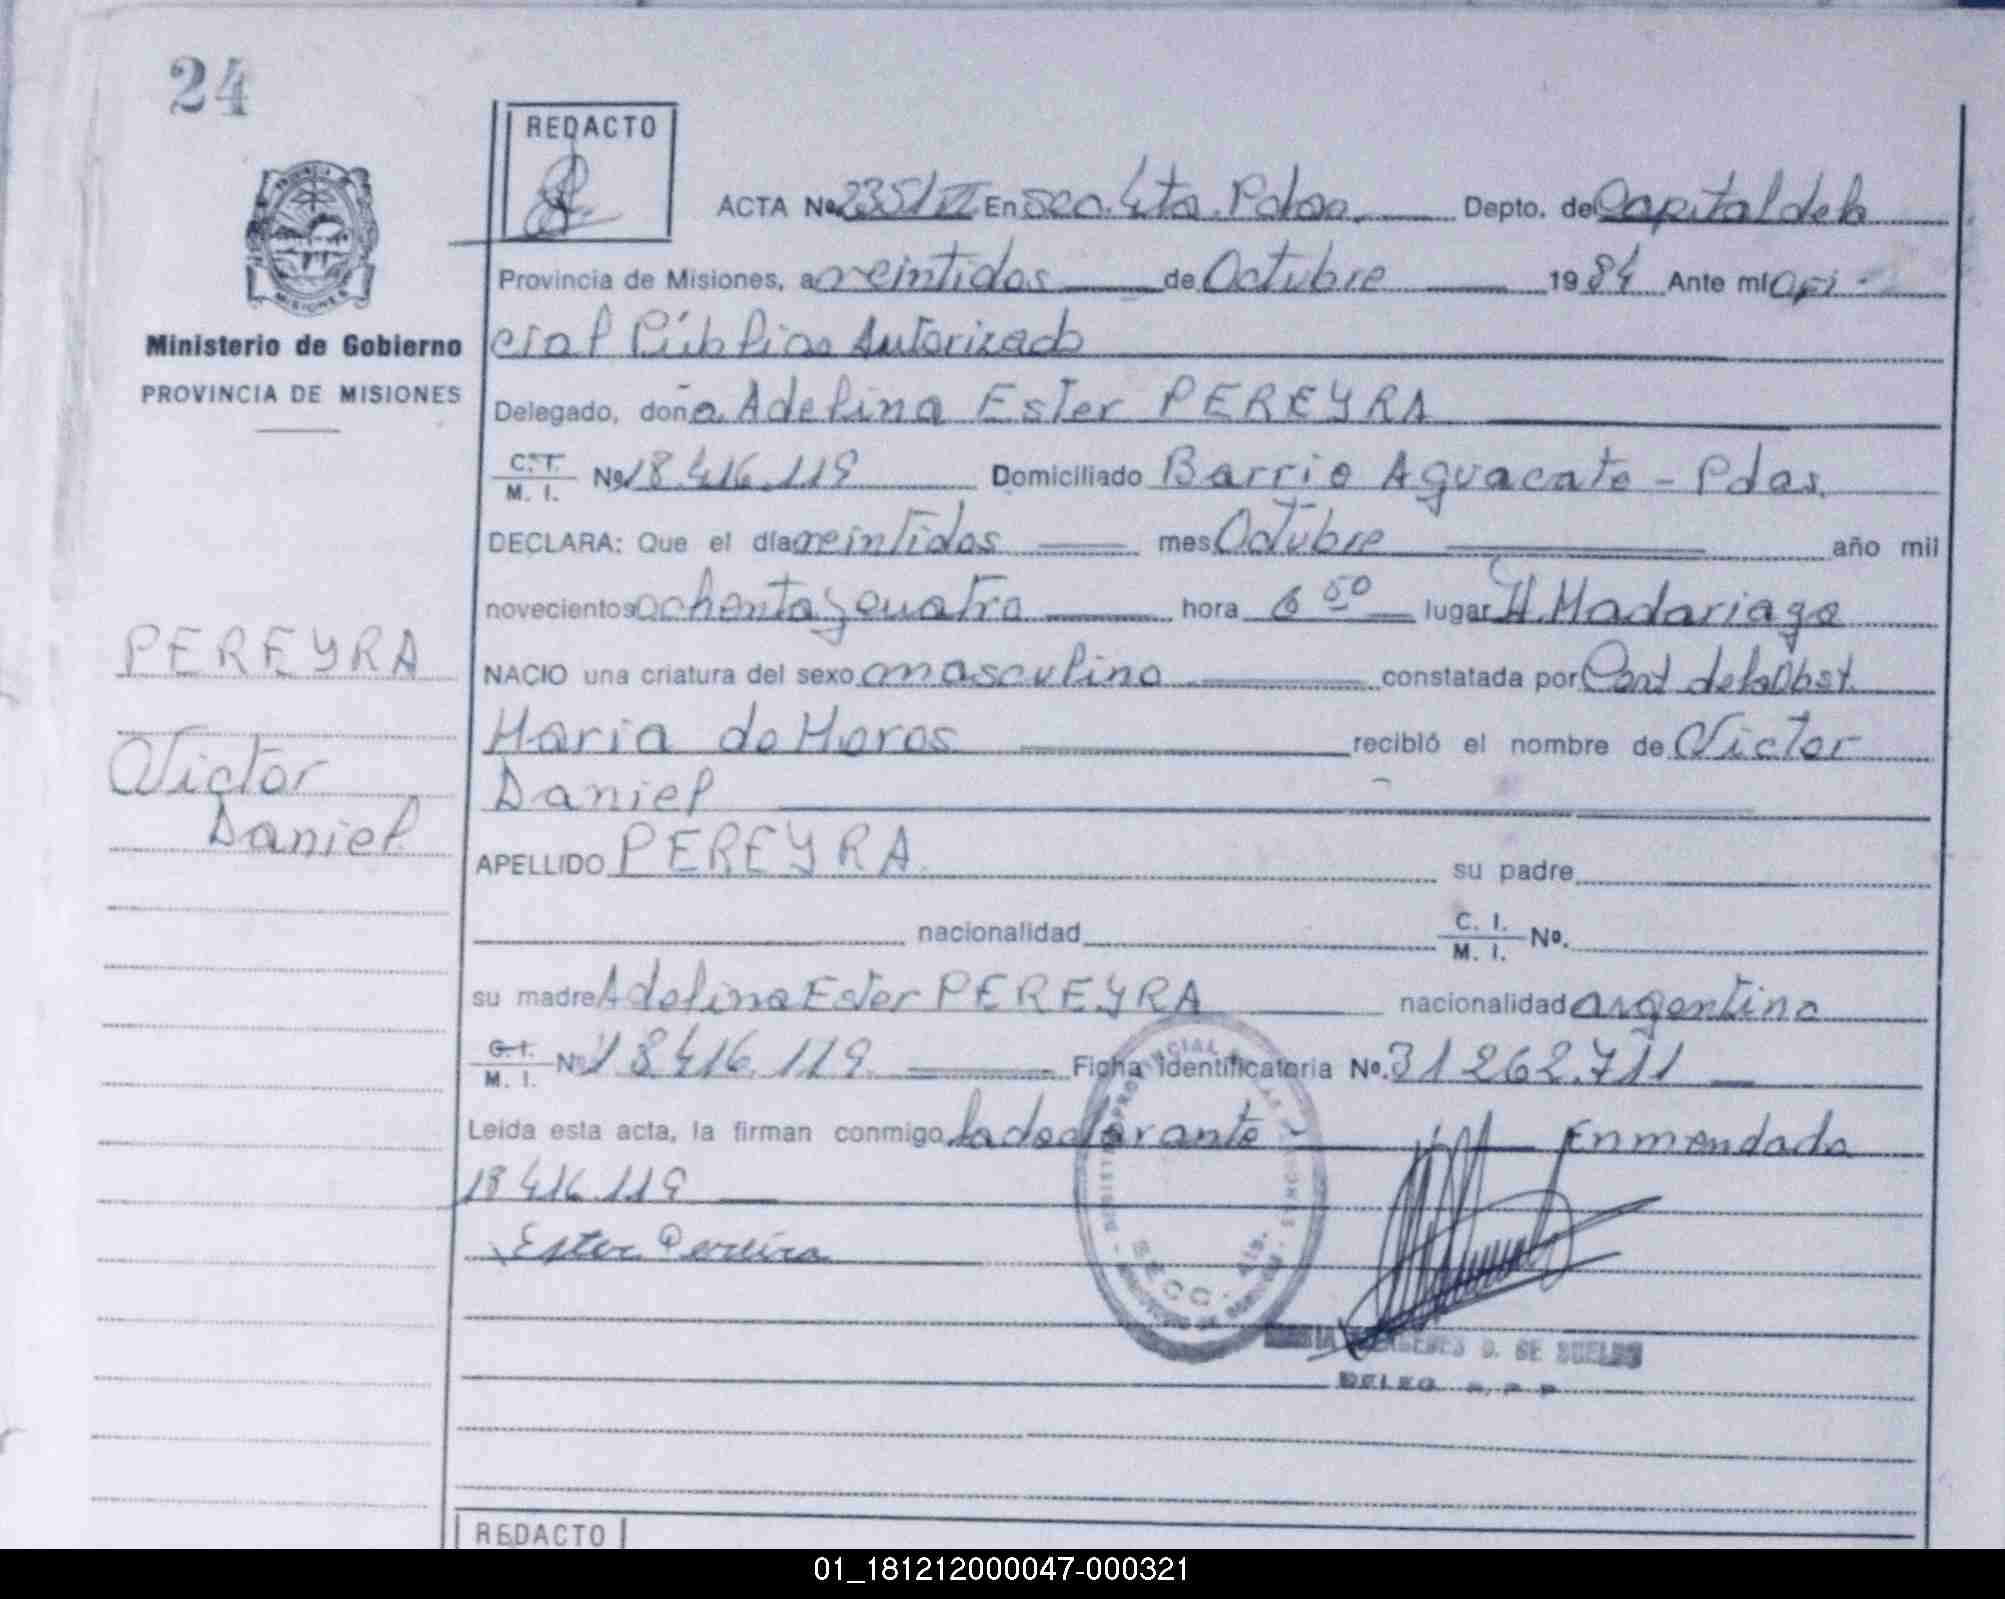 24
REDACTO
ACTA Nº 2351/VI En Sec. 4ta. Pdas. Depto. de Capital de la
Provincia de Misiones, a veintidos de Octubre 1984 Ante mi Ofi-
cial Público Autorizado
Ministerio de Gobierno
PROVINCIA DE MISIONES
Delegado, doña Adelina Ester PEREYRA
C. I. M. I. Nº 18.416.119 Domiciliado Barrio Aguacate - Pdas.
DECLARA: Que el día veintidos mes Octubre año mil
novecientos ochenta y cuatro hora 6 50 lugar H. Madariaga
NACIO una criatura del sexo masculino constatada por Cert de la Obst.
Maria de Meros recibió el nombre de Victor
Daniel
PEREYRA
Victor
Daniel
APELLIDO PEREYRA su padre
nacionalidad C. I. M. I. Nº.
su madre Adelina Ester PEREYRA nacionalidad argentina
C. I. M. I. Nº 18.416.119 Ficha identificatoria Nº. 31262.711
Leida esta acta, la firman conmigo la declarante - Enmendado
18 416.119
Ester Pereira
SECC. 4ta.
D. DE
DELEG.
REDACTO
01_181212000047-000321